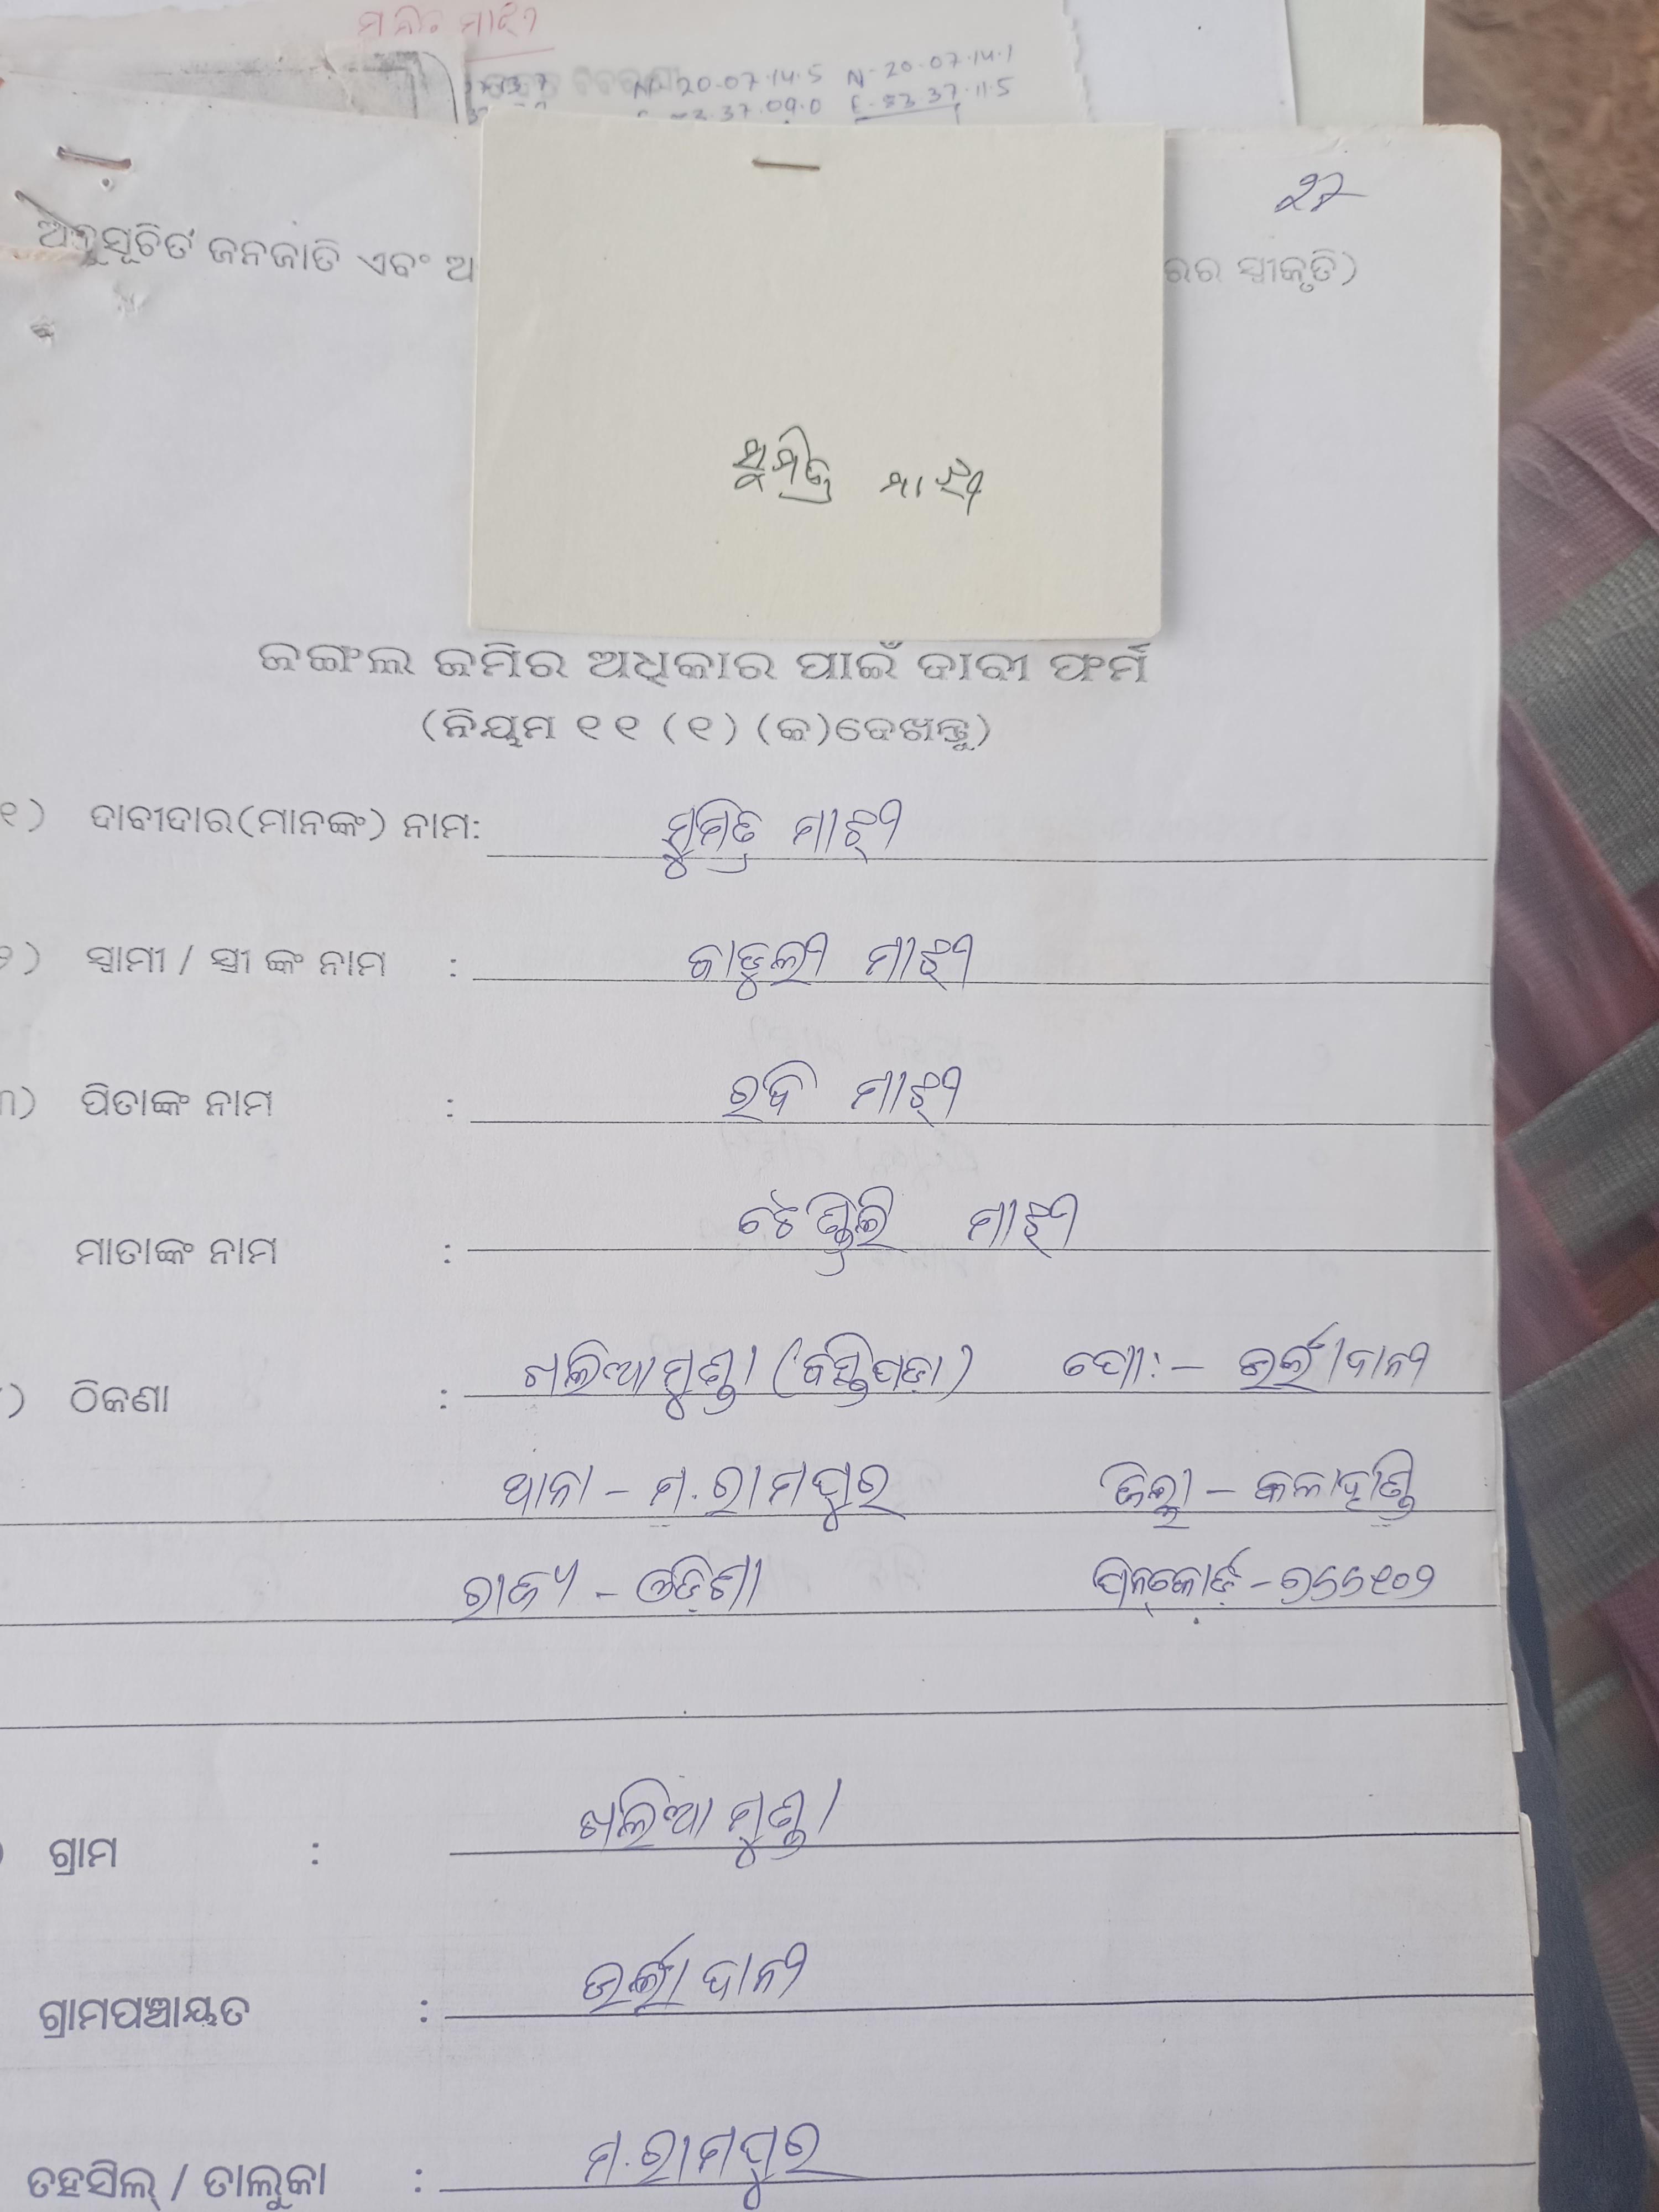 ମନିତ ମାଝୀ
N- 20.07.14.5 N- 20.07.14.1
37.09.0 E-83 37.11.5
୨୫
ଅନୁସୂଚିତ ଜନଜାତି ଏବଂ ଅ ରର ସ୍ୱୀକୃତି)
ସୁମିତ୍ର ମାଝୀ
ଜଙ୍ଗଲ ଜମିର ଅଧିକାର ପାଇଁ ଦାବୀ ଫର୍ମ
(ନିୟମ ୧୧ (୧) (କ)ଦେଖନ୍ତୁ)
୧) ଦାବୀଦାର(ମାନଙ୍କ) ନାମ: ସୁମିତ୍ର ମାଝୀ
୨) ସ୍ୱାମୀ / ସ୍ତ୍ରୀ ଙ୍କ ନାମ : ବାତୁଲୀ ମାଝୀ
୩) ପିତାଙ୍କ ନାମ : ରବି ମାଝୀ
ମାତାଙ୍କ ନାମ : ମାଝୀ
) ଠିକଣା : ଖଲିଆମୁଣ୍ଡା (ବସ୍ତିପଡା) ପୋ:- ଉର୍ଲାଦାନୀ
ଥାନା - ମ.ରାମପୁର ଜିଲ୍ଲା - କଳାହାଣ୍ଡି
ରାଜ୍ୟ - ଓଡ଼ିଶା ପିନ୍‌କୋଡ୍ - ୭୬୬୧୦୨
ଗ୍ରାମ : ଖଲିଆମୁଣ୍ଡା
ଗ୍ରାମପଞ୍ଚାୟତ : ଉର୍ଲାଦାନୀ
ତହସିଲ୍ / ତାଲୁକା : ମ.ରାମପୁର